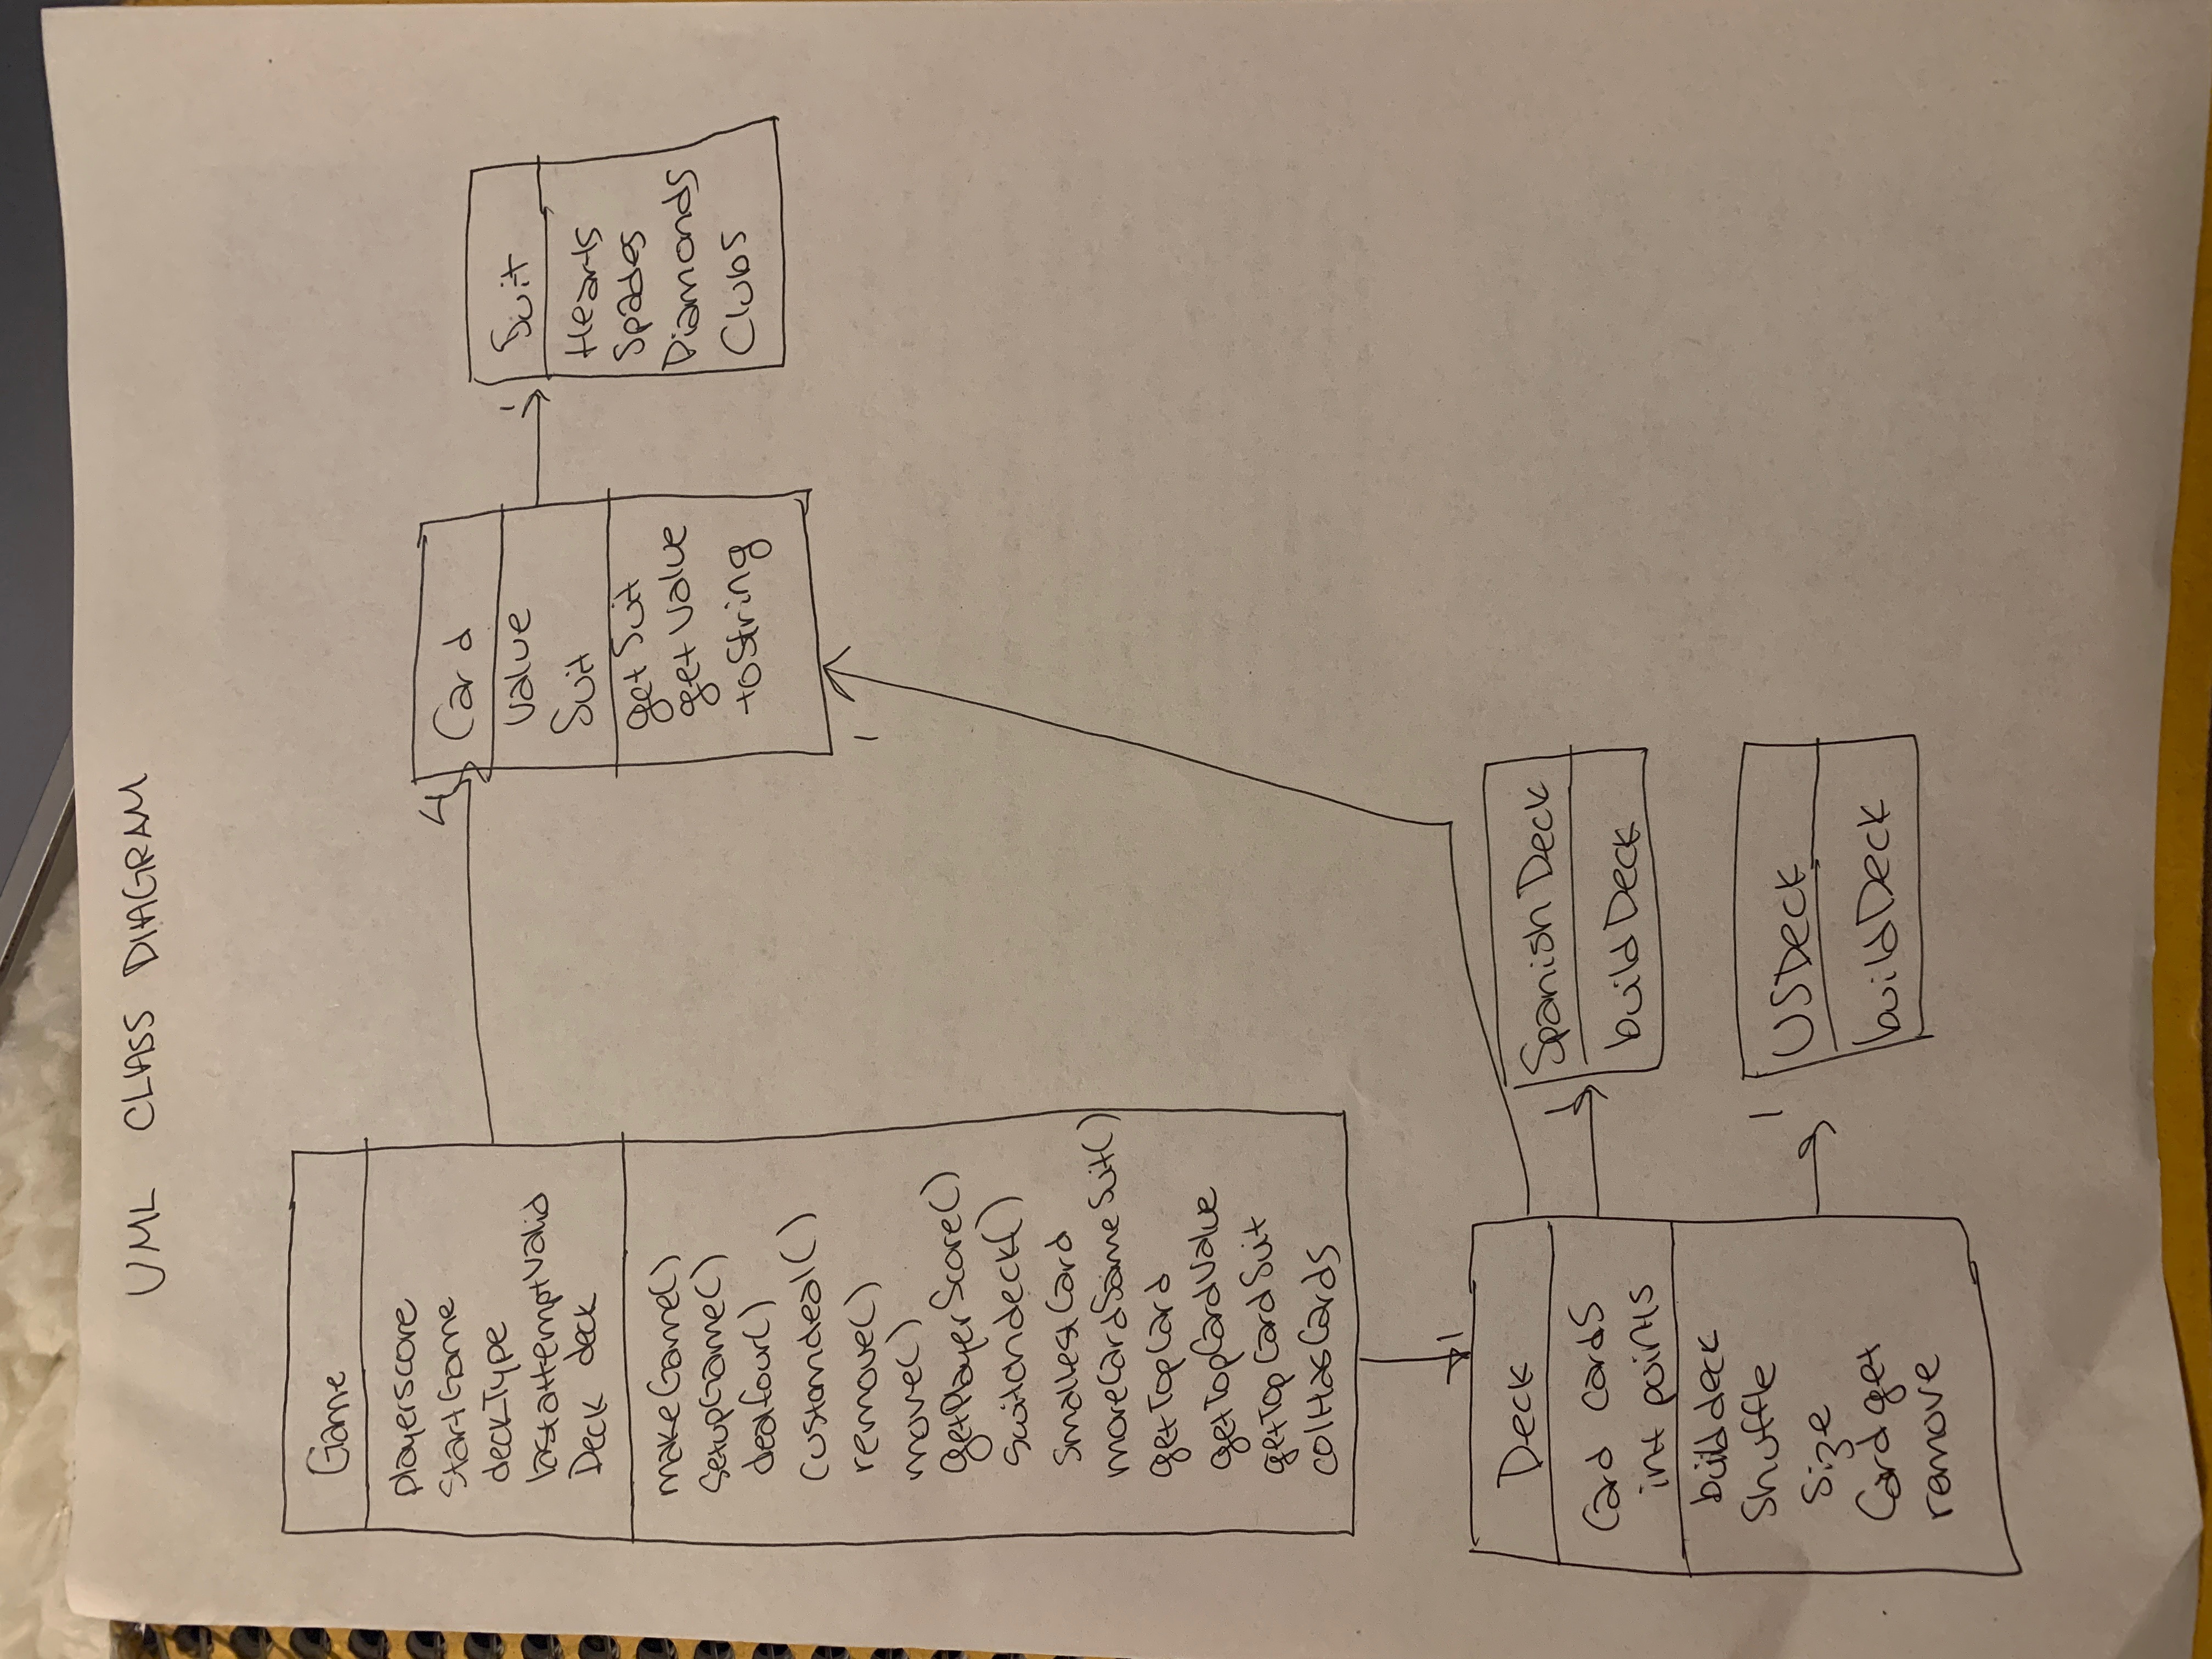 UML CLASS DIAGRAM
Game
playerscore
StartGame
deckType
lastattemptValid
Deck deck
makeGame()
SetupGame()
dealfour()
Customdeal()
remove()
move()
getPlayerScore()
Switchdeck()
SmallestCard
moreCardSameSuit()
getTopCard
getTopCardValue
getTopCardSuit
colHasCards
4
Card
Value
Suit
getSuit
getValue
toString
1
Suit
Hearts
Spades
Diamonds
Clubs
1
1
Deck
Card cards
int points
builddeck
Shuffle
Size
Card get
remove
1
Spanish Deck
buildDeck
1
USDeck
buildDeck